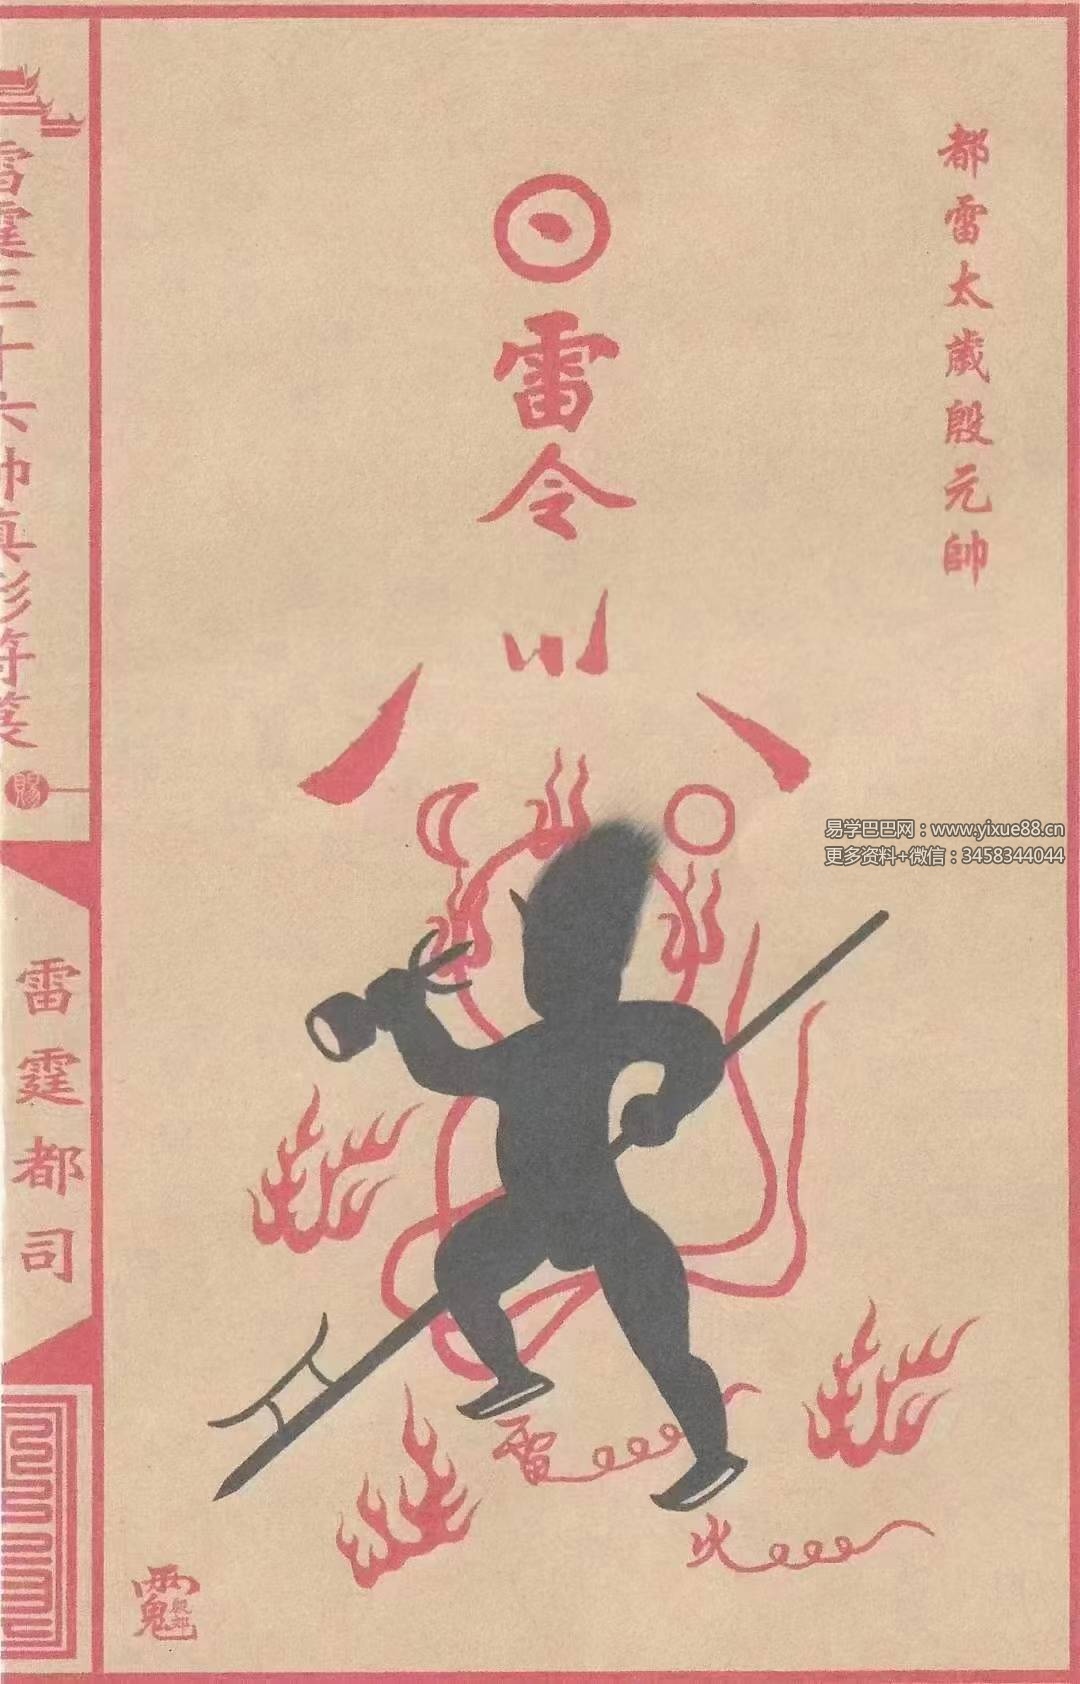 都雷太歲殷元帥
雷令
雷
火
雷霆三十六帥真形符篆
賜
雷霆都司
易学巴巴网：www.yixue88.cn
更多资料+微信：3458344044